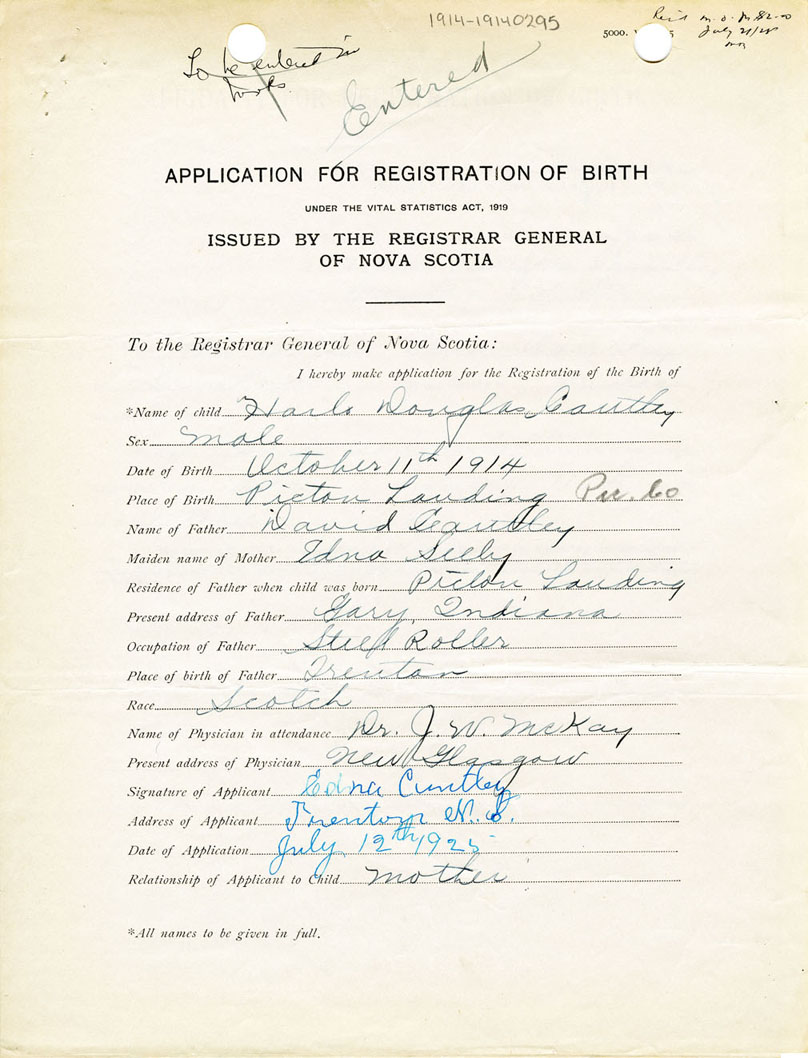 1914-19140295
5000.
Rec'd m.o. $2.00
July 21/25
To be entered in
books.
Entered
APPLICATION FOR REGISTRATION OF BIRTH
UNDER THE VITAL STATISTICS ACT, 1919
ISSUED BY THE REGISTRAR GENERAL
OF NOVA SCOTIA
To the Registrar General of Nova Scotia:
I hereby make application for the Registration of the Birth of
*Name of child Douglas
Sex Male
Date of Birth October 11th 1914
Place of Birth Picton Landing Pic. Co
Name of Father David
Maiden name of Mother Edna Seely
Residence of Father when child was born Picton Landing
Present address of Father Gary, Indiana
Occupation of Father Steel Roller
Place of birth of Father Trenton
Race Scotch
Name of Physician in attendance Dr. J. W. McKay
Present address of Physician New Glasgow
Signature of Applicant Edna
Address of Applicant Trenton N.S.
Date of Application July 12th 1925
Relationship of Applicant to Child mother
*All names to be given in full.